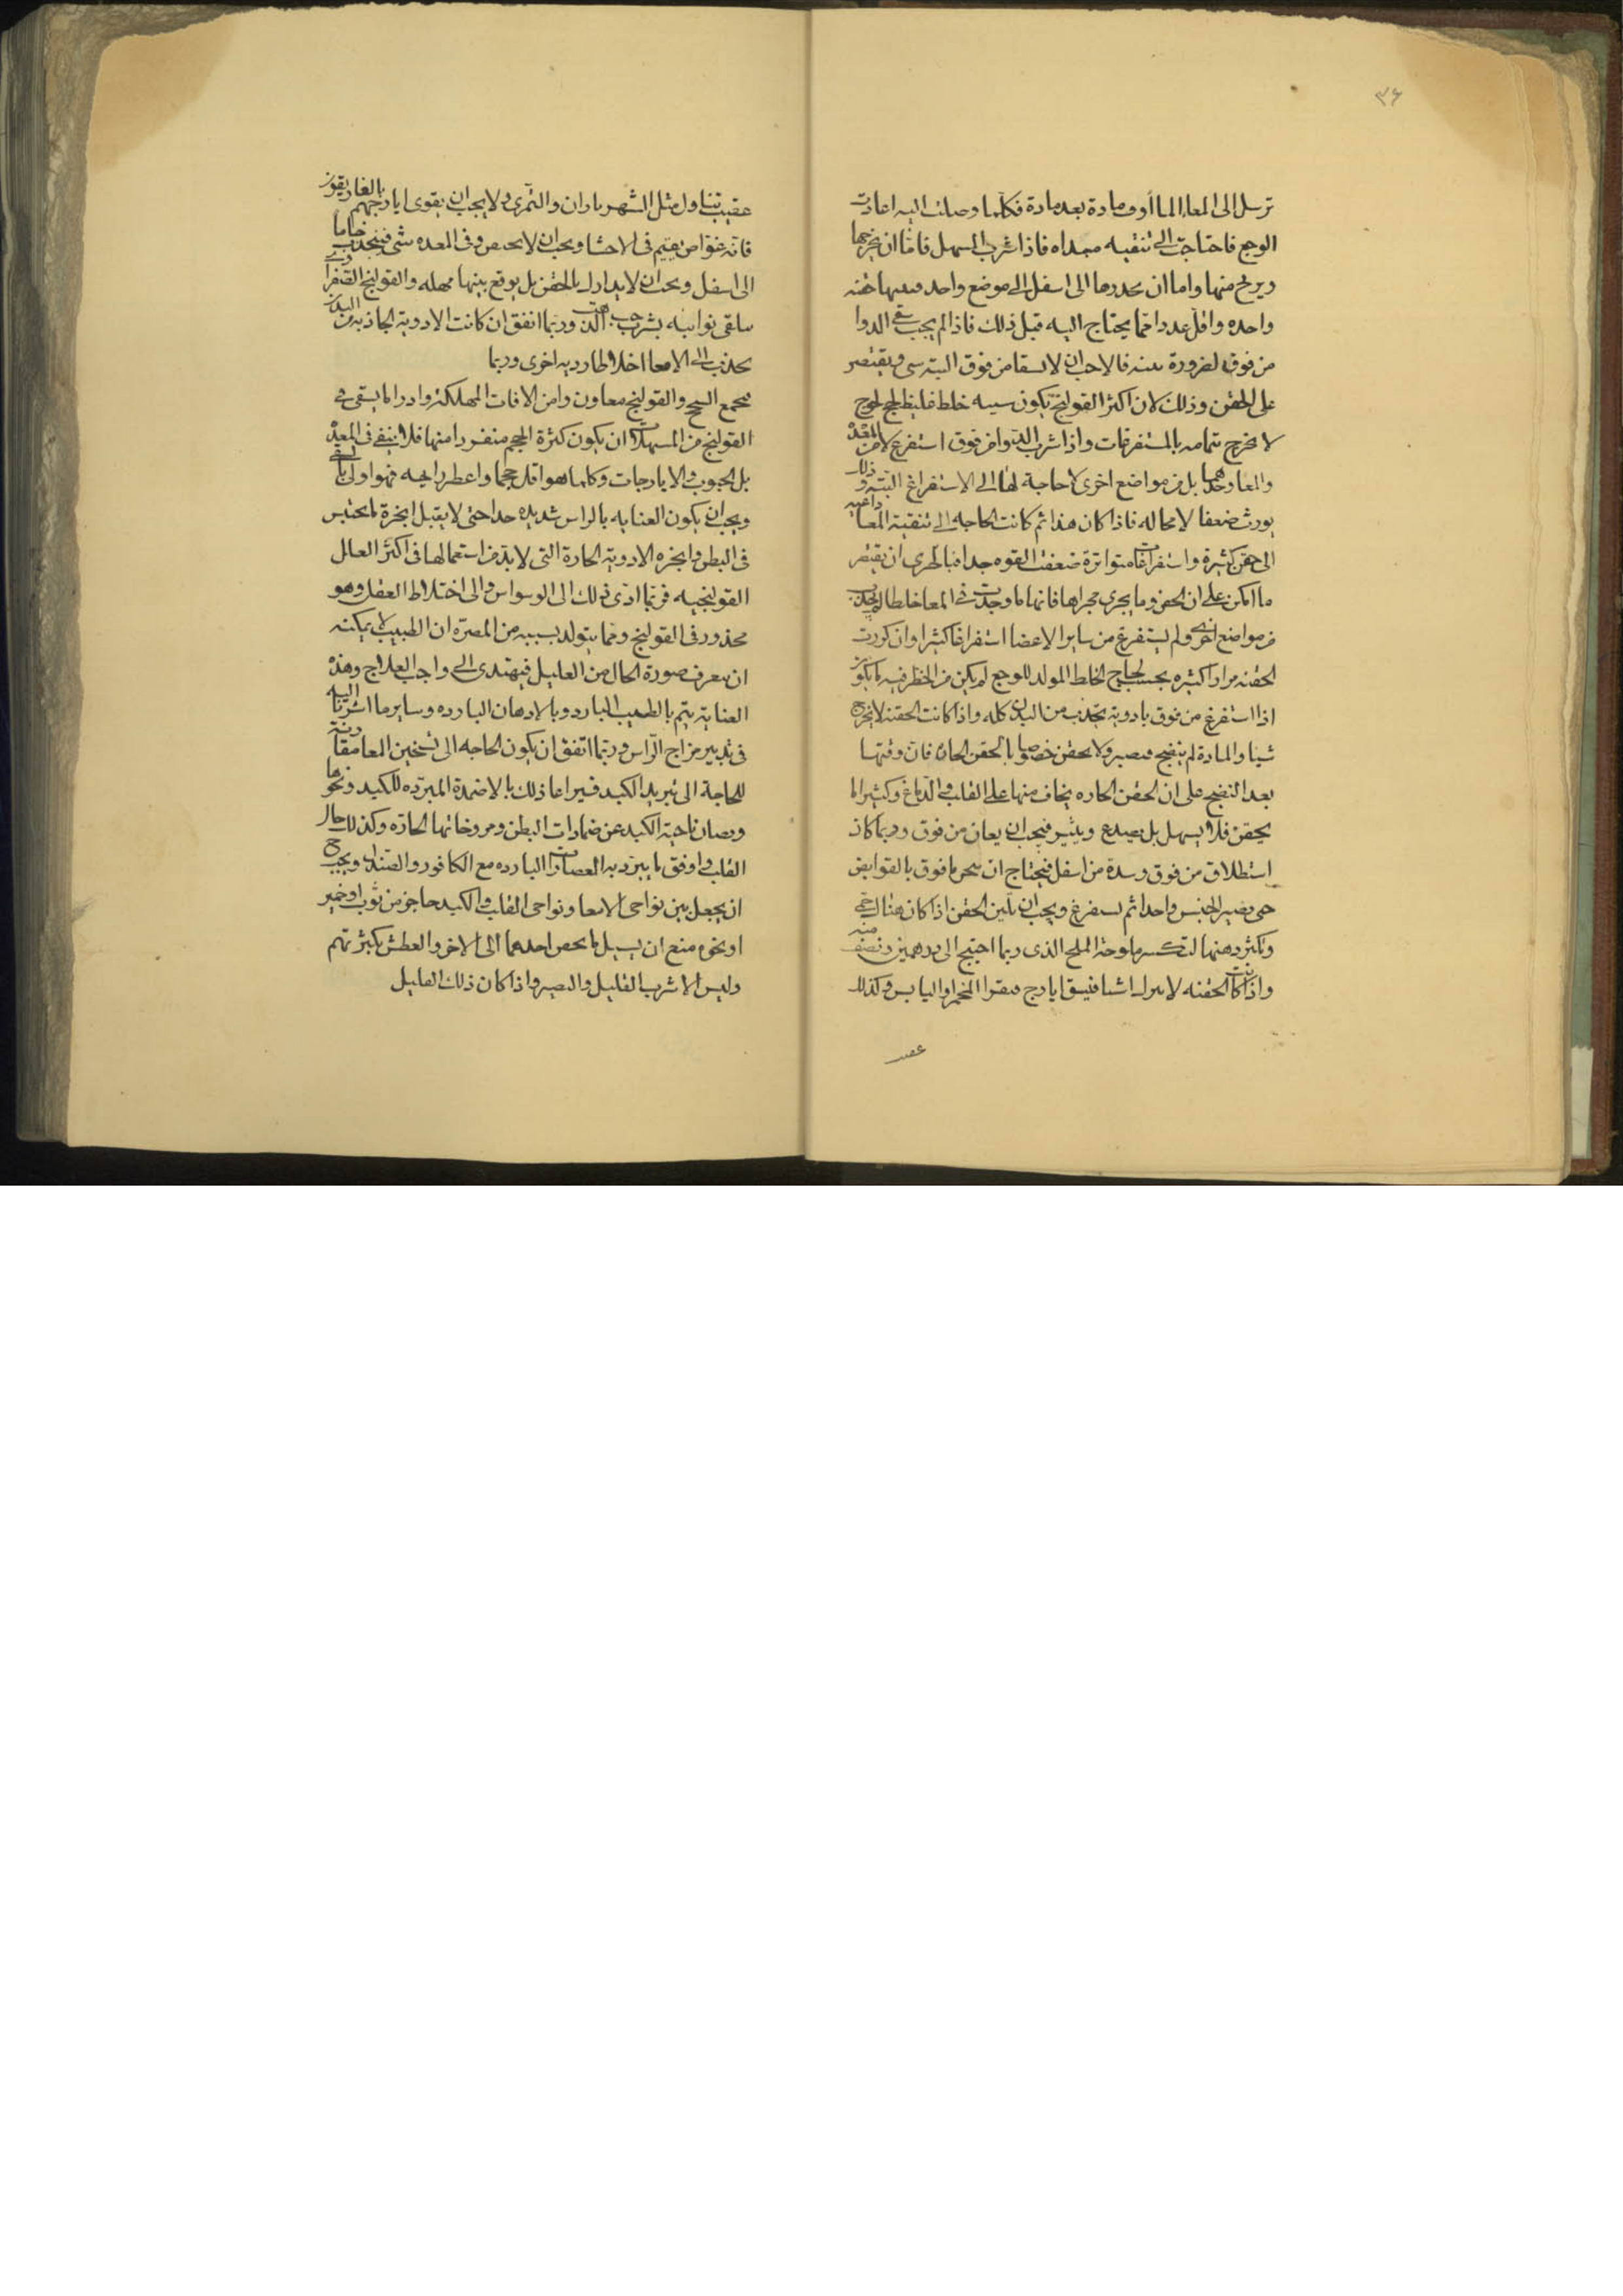 ٣٦
ترسل الى المعاء الماأوف مادة بعد مادة فكلما وصلت اليه اعادت
الوجع فاحتاجت الى تنقيه مبداه فاذا شرب المسهل فاما ان يخرجها
ويريح منها واما ان يحدرها الى اسفل الى موضع واحد حقنه
واحده واقل عددا مما يحتاج اليه قبل ذلك فاذا لم يجب سقى الدوا
من فوق لضرورة فالاحب ان لا يسقا من فوق البته شى ويقتصر
على الحقن وذلك لان اكثر القولنج يكون سببه خلط غليظ لحج لحوج
لا يخرج بتمامه بالمستفرغات واذا شرب الدوا من فوق استفرغ لا من المعده
والمعا وحدهما بل من مواضع اخرى لا حاجة لها الى الاستفراغ البته وذلك
يورث ضعفا لا محاله فاذا كان هذا ثم كانت الحاجه الى تنقية المعا داعيه
الى حقن كثيرة واستفراغات متواترة ضعفت القوه جدا فبالحرى ان يقتصر
ما امكن على ان الحقن وما يجرى مجراها فانها ما وجدت فى المعا خلطا لم يجذب
من مواضع اخرى ولم يستفرغ من ساير الاعضا استفراغا كثيرا وان كررت
الحقنه مرارا كثيره بحسب لحاج الخلط المولد للوجع لم يكن من الخطر فيه ما يكون
اذا استفرغ من فوق بادوية تجذب من البدن كله واذا كانت الحقنه لا تخرج
شيا والمادة لم تنضج فيصبر ولا يحقن خصوصا بالحقن الحاره فان وقتها
بعد النضج على ان الحقن الحاره يخاف منها على القلب والدماغ وكثيرا ما
يحقن فلا يسهل بل يصدع ويثير فيجب ان يعان من فوق وربما كان
استطلاق من فوق وسدة من اسفل فيحتاج ان ما فوق بالقوابض
حتى يصير الجنس واحدا ثم يستفرغ ويجب ان تلين الحقن اذا كان هناك حمى
وتكثر دهنها لتكسر ملوحة الملح الذى ربما احتيج الى درهمين ونصف منه
واذا كانت الحقنه لا شيا فيسقى ايارج فيقرا المخمر او اليابس وكذلك
عقيب
عقيب تناول مثل الشهرياران والتمرى ولا يجب ان يقوى ايارجهم بالغاريقون
فانه غواص يقيم فى الاحشا ويجب ان لا يحقن وفى المعده شى فينجذب خاما
الى اسفل ويجب ان لا يدارك بالحقن بل يوقع بينها مهله والقولنج
يتلقى نوايبه بشرب حب وربما اتفق ان كانت الادوية الجاذبه من البدن
يجذب الى الامعا اخلاطا ردية اخرى وربما
يجمع السحج والقولنج معا ومن الافات المهلكه وادر ما يسقى فى
القولنج من المسهلات ان يكون كثيرة الحجم منفورا منها فلا يبقى فى المعده
بل الحبوب والايارجات وكلما هو اقل حجما واعطر رايحه فهو اولى بالسقى
ويجب ان يكون العنايه بالراس شديده جدا حتى لا يقبل ابخرة ما يحتبس
فى البطن وابخرة الادوية الحادة التى لا بد من استعمالها فى اكثر العلل
القولنجيه فربما ادى ذلك الى الوسواس والى اختلاط العقل وهو
محذور فى القولنج ومما يتولد بسببه من المضرة ان الطبيب لا يمكنه
ان يعرف صورة الحال من العليل فيهتدى الى واجب العلاج وهذه
العناية يتم بالطيب البارد وبالادهان البارده وساير ما اشرنا اليه
فى تدبير مزاج الراس وربما اتفق ان يكون الحاجه الى تسخين المعا مقارنة
للحاجة الى تبريد الكبد فيراعا ذلك بالاضمدة المبرده للكبد ونحوها
ويصان ناحية الكبد عن ضمادات البطن ومروخاتها الحاره وكذلك حال
القلب واوفق ما يبرد به العصارات البارده مع الكافور والصندل ويجب
ان يجعل بين نواحى الامعا ونواحى القلب والكبد حاجز من ثوب او خمير
او نحوه منع ان يسيل ما يخص احدهما الى الاخر والعطش يكثر بهم
وليس الا شرب القليل والصبر واذا كان ذلك القليل